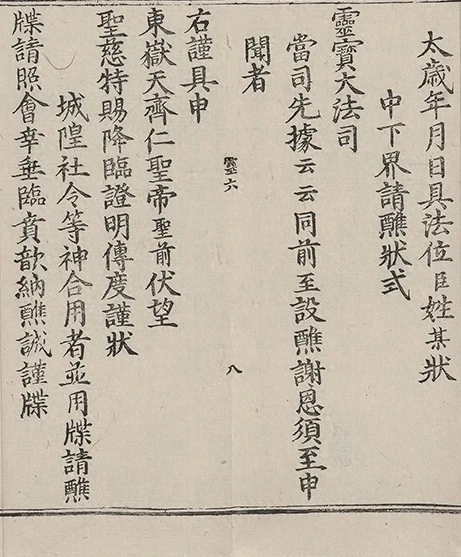 太歲年月日具法位臣姓某狀
中下界請醮狀式
靈寶大法司
當司先據云云同前至設醮謝恩須至申
聞者
靈六
八
右謹具申
東嶽天齊仁聖帝聖前伏望
聖慈特賜降臨證明傳度謹狀
城隍社令等神合用者並用牒請醮
牒請照會幸垂臨賁歆納醮誠謹牒